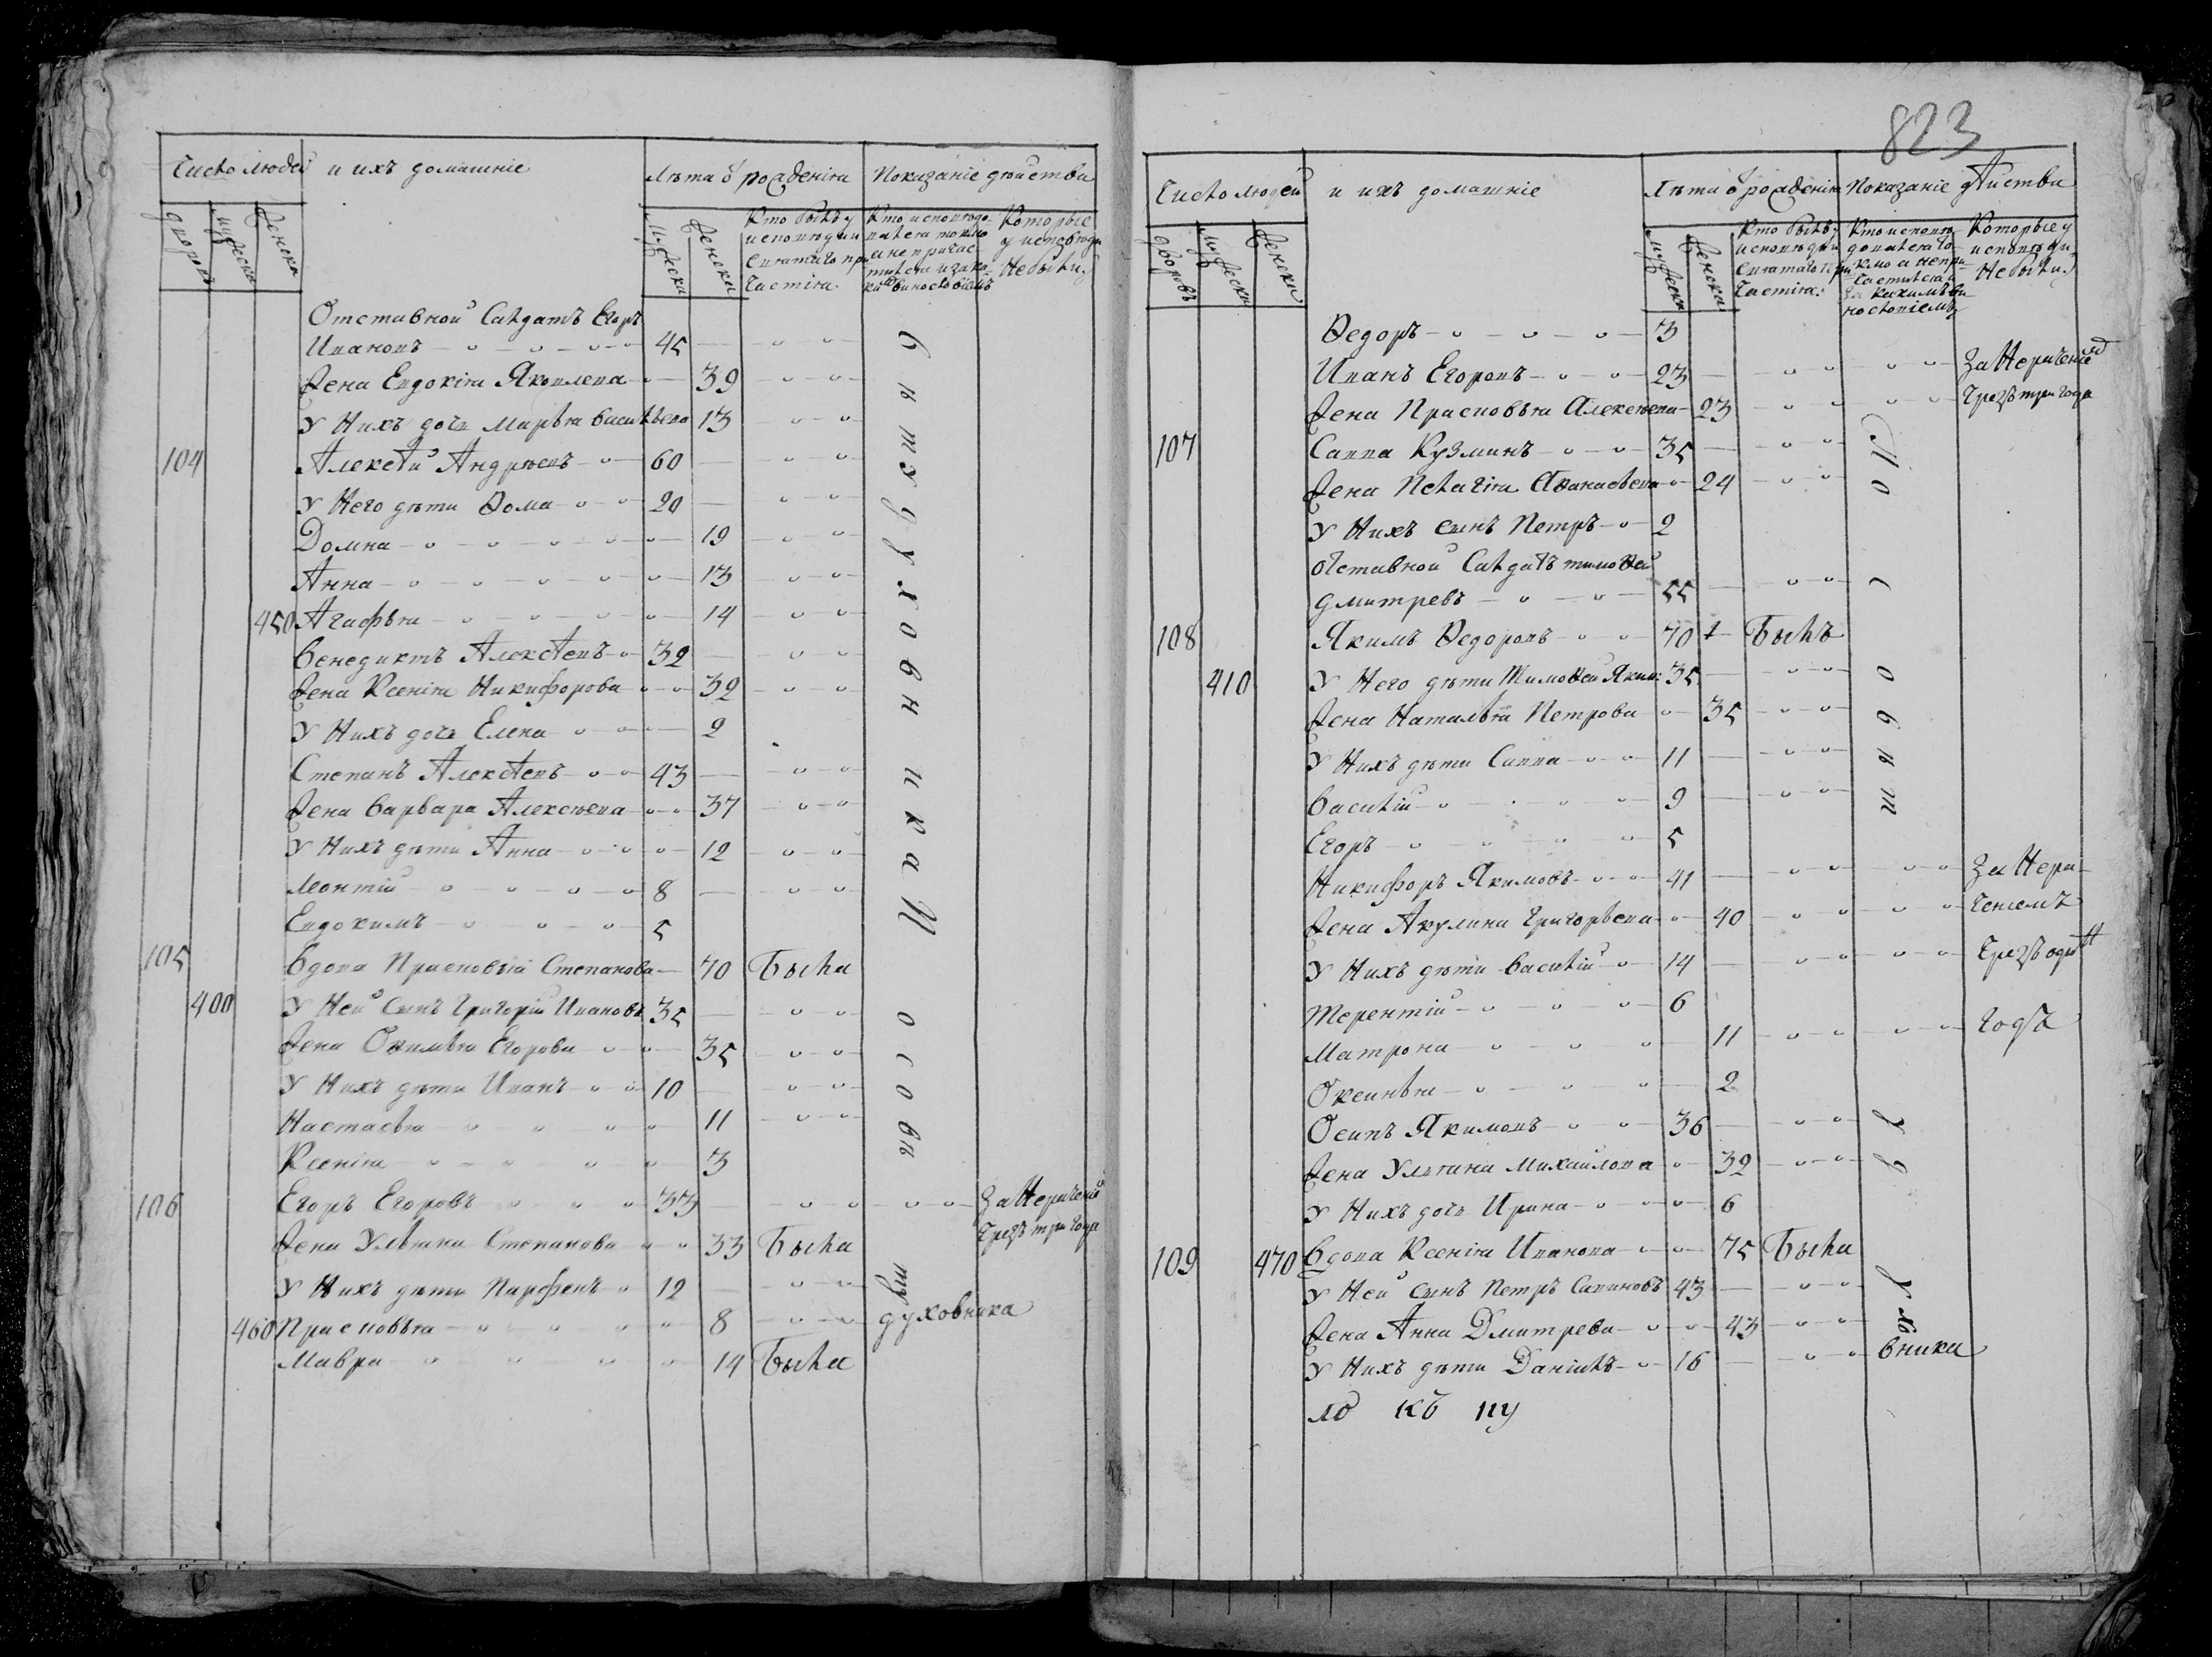 Число людей и ихъ домашніе Лѣта ѿ рожденія Показаніе дѣйства
дворовъ мужеска женска мужеска женска
Кто былъ у исповѣди и святаго причастія
Которые у исповѣди не были
Отставной Салдатъ Егоръ
Ивановъ 45
Жена Евдокія Яковлева 39
У Нихъ дочь Марѳа Васильева 13
104 Алексѣй Андрѣевъ 60
У Него дѣти Ѳома 20
Домна 19
Анна 13
450 Агафья 14
Венедиктъ Алексѣевъ 32
Жена Ксенія Никифорова 32
У Нихъ дочь Елена 2
Степанъ Алексѣевъ 43
Жена Варвара Алексѣева 37
У Нихъ дѣти Анна 12
Леонтій 8
Евдокимъ 5
105 Вдова Прасковья Степанова 70 Была
400 У Ней Сынъ Григорій Ивановъ 35
Жена Ѳвимья Егорова 35
У Нихъ дѣти Иванъ 10
Настасья 11
Ксенія 3
106 Егоръ Егоровъ 33 За Нерачені
Жена Ульяна Степанова 33 Была Чрезъ три года
У Нихъ дѣти Парфенъ 12
460 Прасковья 8 духовника
Мавра 14 Была
823
Число людей и ихъ домашніе Лѣта ѿ рожденія Показаніе дѣйства
дворовъ мужеска женска мужеска женска
Кто былъ у исповѣди и святаго причастія
Которые у исповѣди не были
Ѳедоръ 3
Иванъ Егоровъ 23 За Нерачение
Жена Прасковья Алексѣева 23 Чрезъ три года
107 Савва Кузминъ 35
Жена Пелагія Аѳанасьева 24
У Нихъ сынъ Петръ 2
ѿставной Салдатъ тимоѳей
дмитревъ 55
108 Якимъ Ѳедоровъ 70 Былъ
410 У Него дѣти Тимоѳей Яким: 35
Жена Наталья Петрова 35
У Нихъ дѣти Савва 11
Василій 9
Егоръ 5
Никифоръ Якимовъ 41 За Нера-
Жена Акулина Григорьева 40 ченіемъ
У Нихъ дѣти Василій 14 Чрезъ один
Терентій 6
Матрона 11 годъ
Оксинья 2
Осипъ Якимовъ 36
Жена Ульяна Михайлова 32
У Нихъ дочь Ирина 6
109 470 Вдова Ксенія Иванова 75 Была
У Ней сынъ Петръ Савиновъ 43
Жена Анна Дмитрева 43
У Нихъ дѣти Данилъ 16 вника